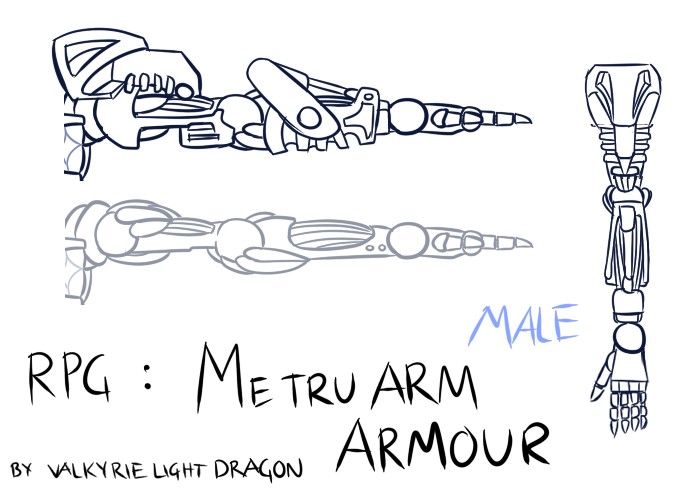 MALE
RPG : METRU ARM
ARMOUR
BY VALKYRIE LIGHT DRAGON